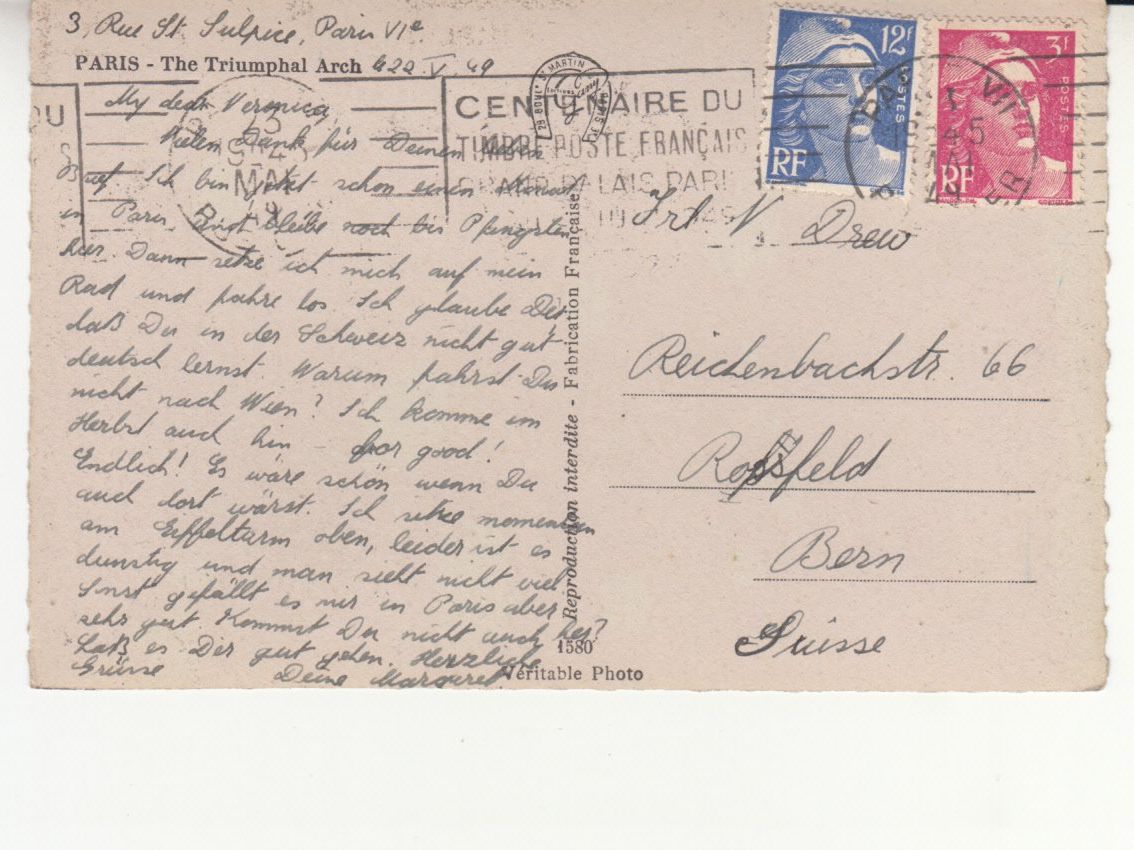 3, Rue St. Sulpice, Paris VIe
PARIS - The Triumphal Arch
22 V. 49
My dear Veronica,
Vielen Dank für Deinen
Brief. Ich bin jetzt schon einen Monat
in Paris und bleibe noch bis Pfingsten
hier. Dann setze ich mich auf mein
Rad und fahre los. Ich glaube Dir
daß Du in der Schweiz nicht gut
deutsch lernst. Warum fahrst Du
nicht nach Wien? Ich komme im
Herbst auch hin for good!
Endlich! Es wäre schön wenn Du
auch dort wärst. Ich sitze momentan
am Eiffelturm oben, leider ist es
dunstig und man sieht nicht viel
Sonst gefällt es mir in Paris aber
sehr gut. Kommst Du nicht auch her?
Laß es Dir gut gehen. Herzliche
Grüsse Deine Margaret
CENTENAIRE DU
TIMBRE-POSTE FRANÇAIS
GRAND PALAIS PARIS
DU
S
28 BOULd ST MARTIN
12f
POSTES
RF
3f
POSTES
RF
PARIS VII
MAI
49
Reproduction interdite - Fabrication Française
1580
Véritable Photo
Frl V Drew
Reichenbachstr. 66
Rossfeld
Bern
Suisse